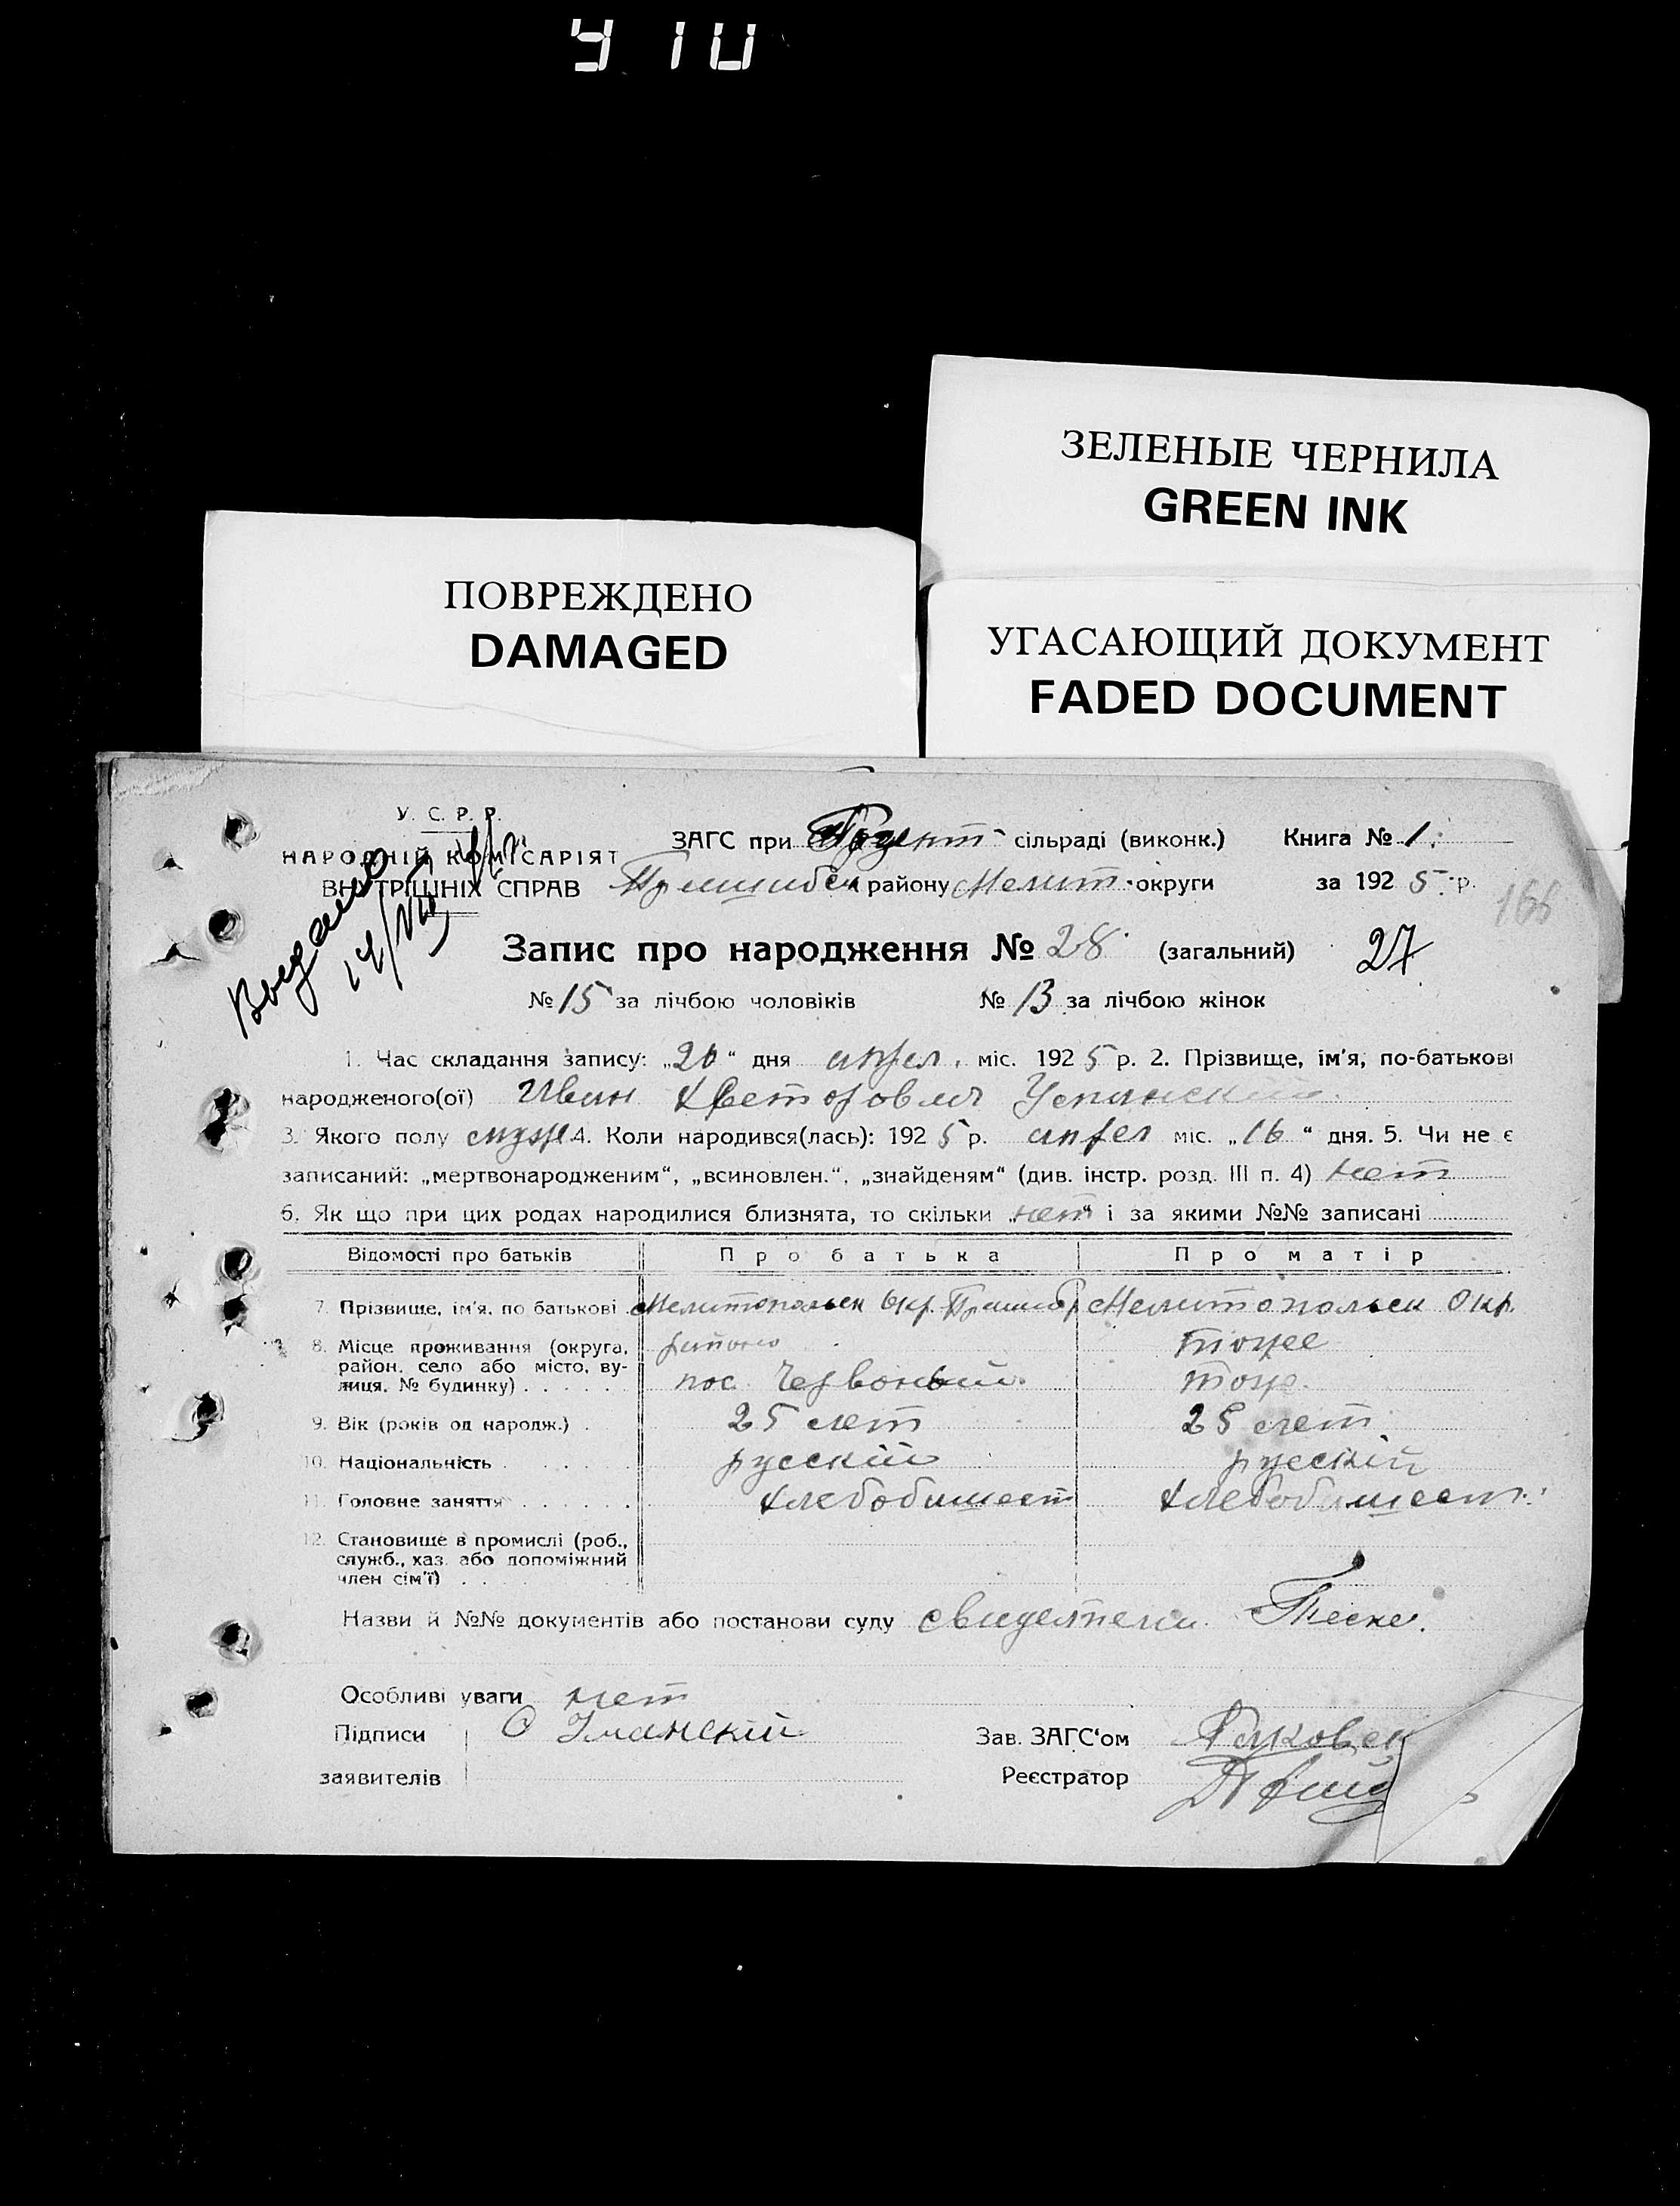 ЗЕЛЕНЫЕ ЧЕРНИЛА
GREEN INK
ПОВРЕЖДЕНО
DAMAGED
УГАСАЮЩИЙ ДОКУМЕНТ
FADED DOCUMENT
У. С. Р. Р.
НАРОДНІЙ КОМІСАРІЯТ
ВНУТРІШНІХ СПРАВ
ЗАГС при сільраді (виконк.) Книга № 1.
Пришибск району Мелит. округи за 1925 р.
166
Запис про народження № 28 (загальний) 27
№ 15 за лічбою чоловіків № 13 за лічбою жінок
1. Час складання запису: „26“ дня апрел. міс. 1925 р. 2. Прізвище, ім'я, по-батькові
народженого(ої) Иван
3. Якого полу муж. 4. Коли народився(лась): 1925 р. апрел міс. „16“ дня. 5. Чи не є
записаний: „мертвонародженим“, „всиновлен.“, „знайденям“ (див. інстр. розд. III п. 4) нет
6. Як що при цих родах народилися близнята, то скільки „нет“ і за якими №№ записані
Відомості про батьків Про батька Про матір
7. Прізвище, ім'я, по батькові Мелитопольск Окр. Пришиб Мелитопольск Окр.
8. Місце проживання (округа, район, село або місто, вулиця, № будинку) района тоже
пос. Червоный тоже
9. Вік (років од народж.) 25 лет 25 лет
10. Національність русский русский
11. Головне заняття хлебобашест хлебобашест
12. Становище в промислі (роб., служб., хаз. або допоміжний член сім'ї)
Назви й №№ документів або постанови суду свидетели Теске.
Особливі уваги нет
Підписи Зав. ЗАГС'ом
заявителів Реєстратор